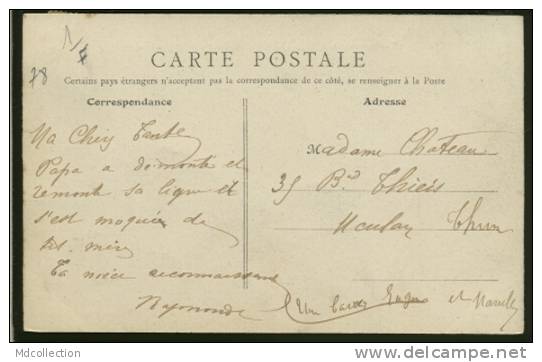 CARTE POSTALE
Certains pays étrangers n'acceptent pas la correspondance de ce côté, se renseigner à la Poste
Correspondance
Adresse
78
Ma Chère Tante
Papa a démonté et
remonté sa ligne et
s'est moquée de
mère
Ta nièce reconnaissante
Raymonde
Madame Chateau
35 Bd Thiers
Un baiser et Marcel
MDcollection
http://www.delcampe.net